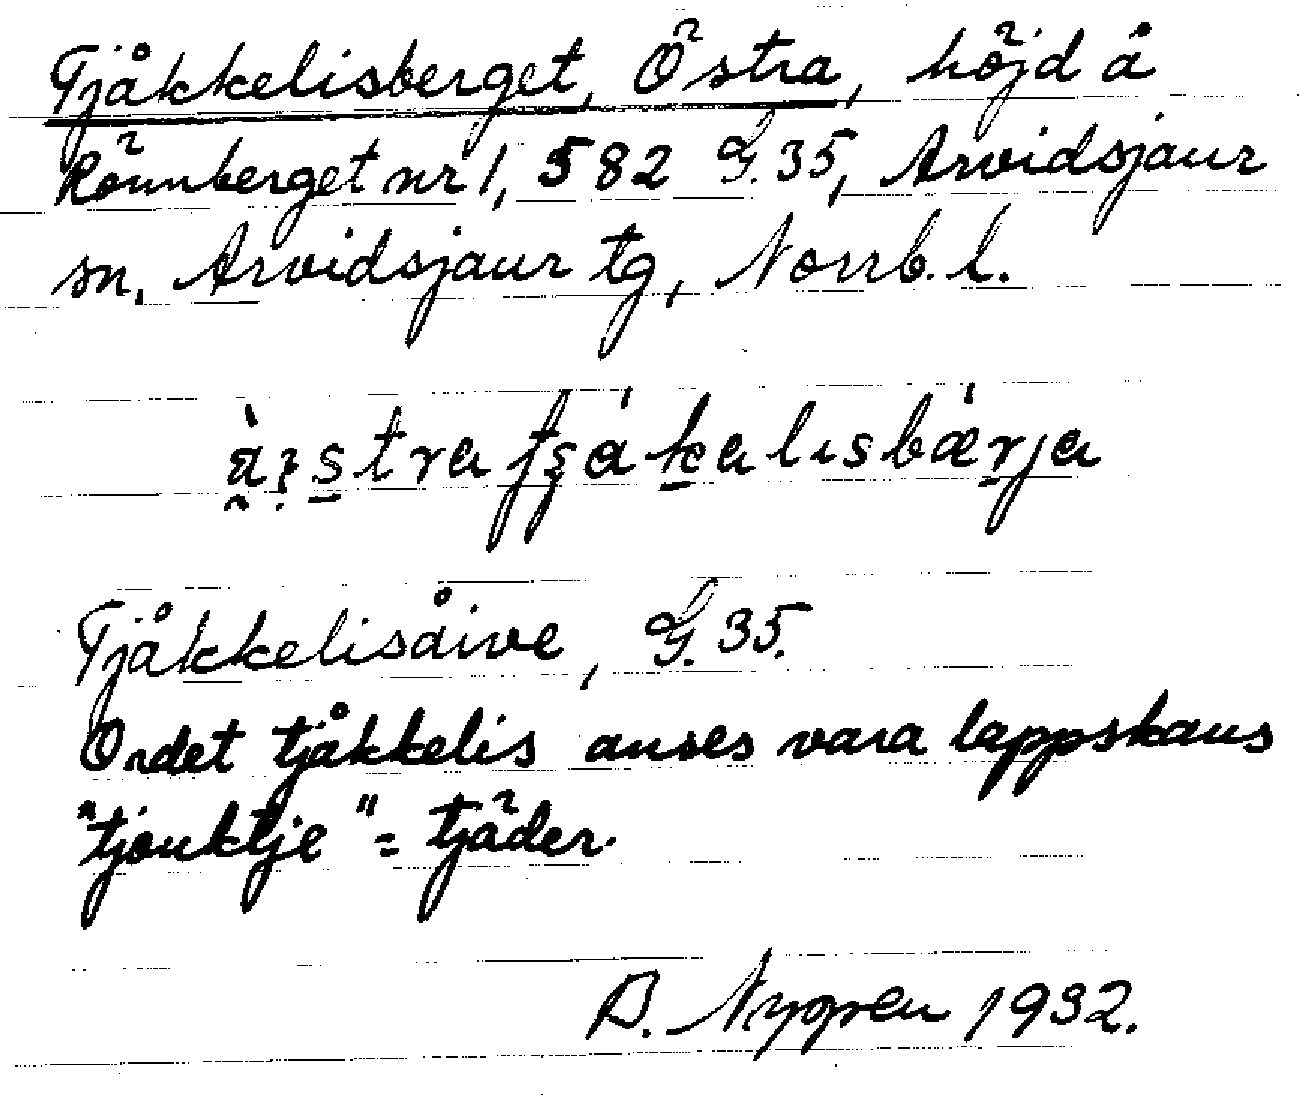 Tjåkkelisberget, Östra, höjd å
Rönnberget nr 1, 582 G. 35, Arvidsjaur
sn, Arvidsjaur tg, Norrb. l.
Tjåkkelisåive, G. 35.
Ordet tjåkkelis anses vara lappskans
"tjouktje" = tjäder.
B. Nygren 1932.